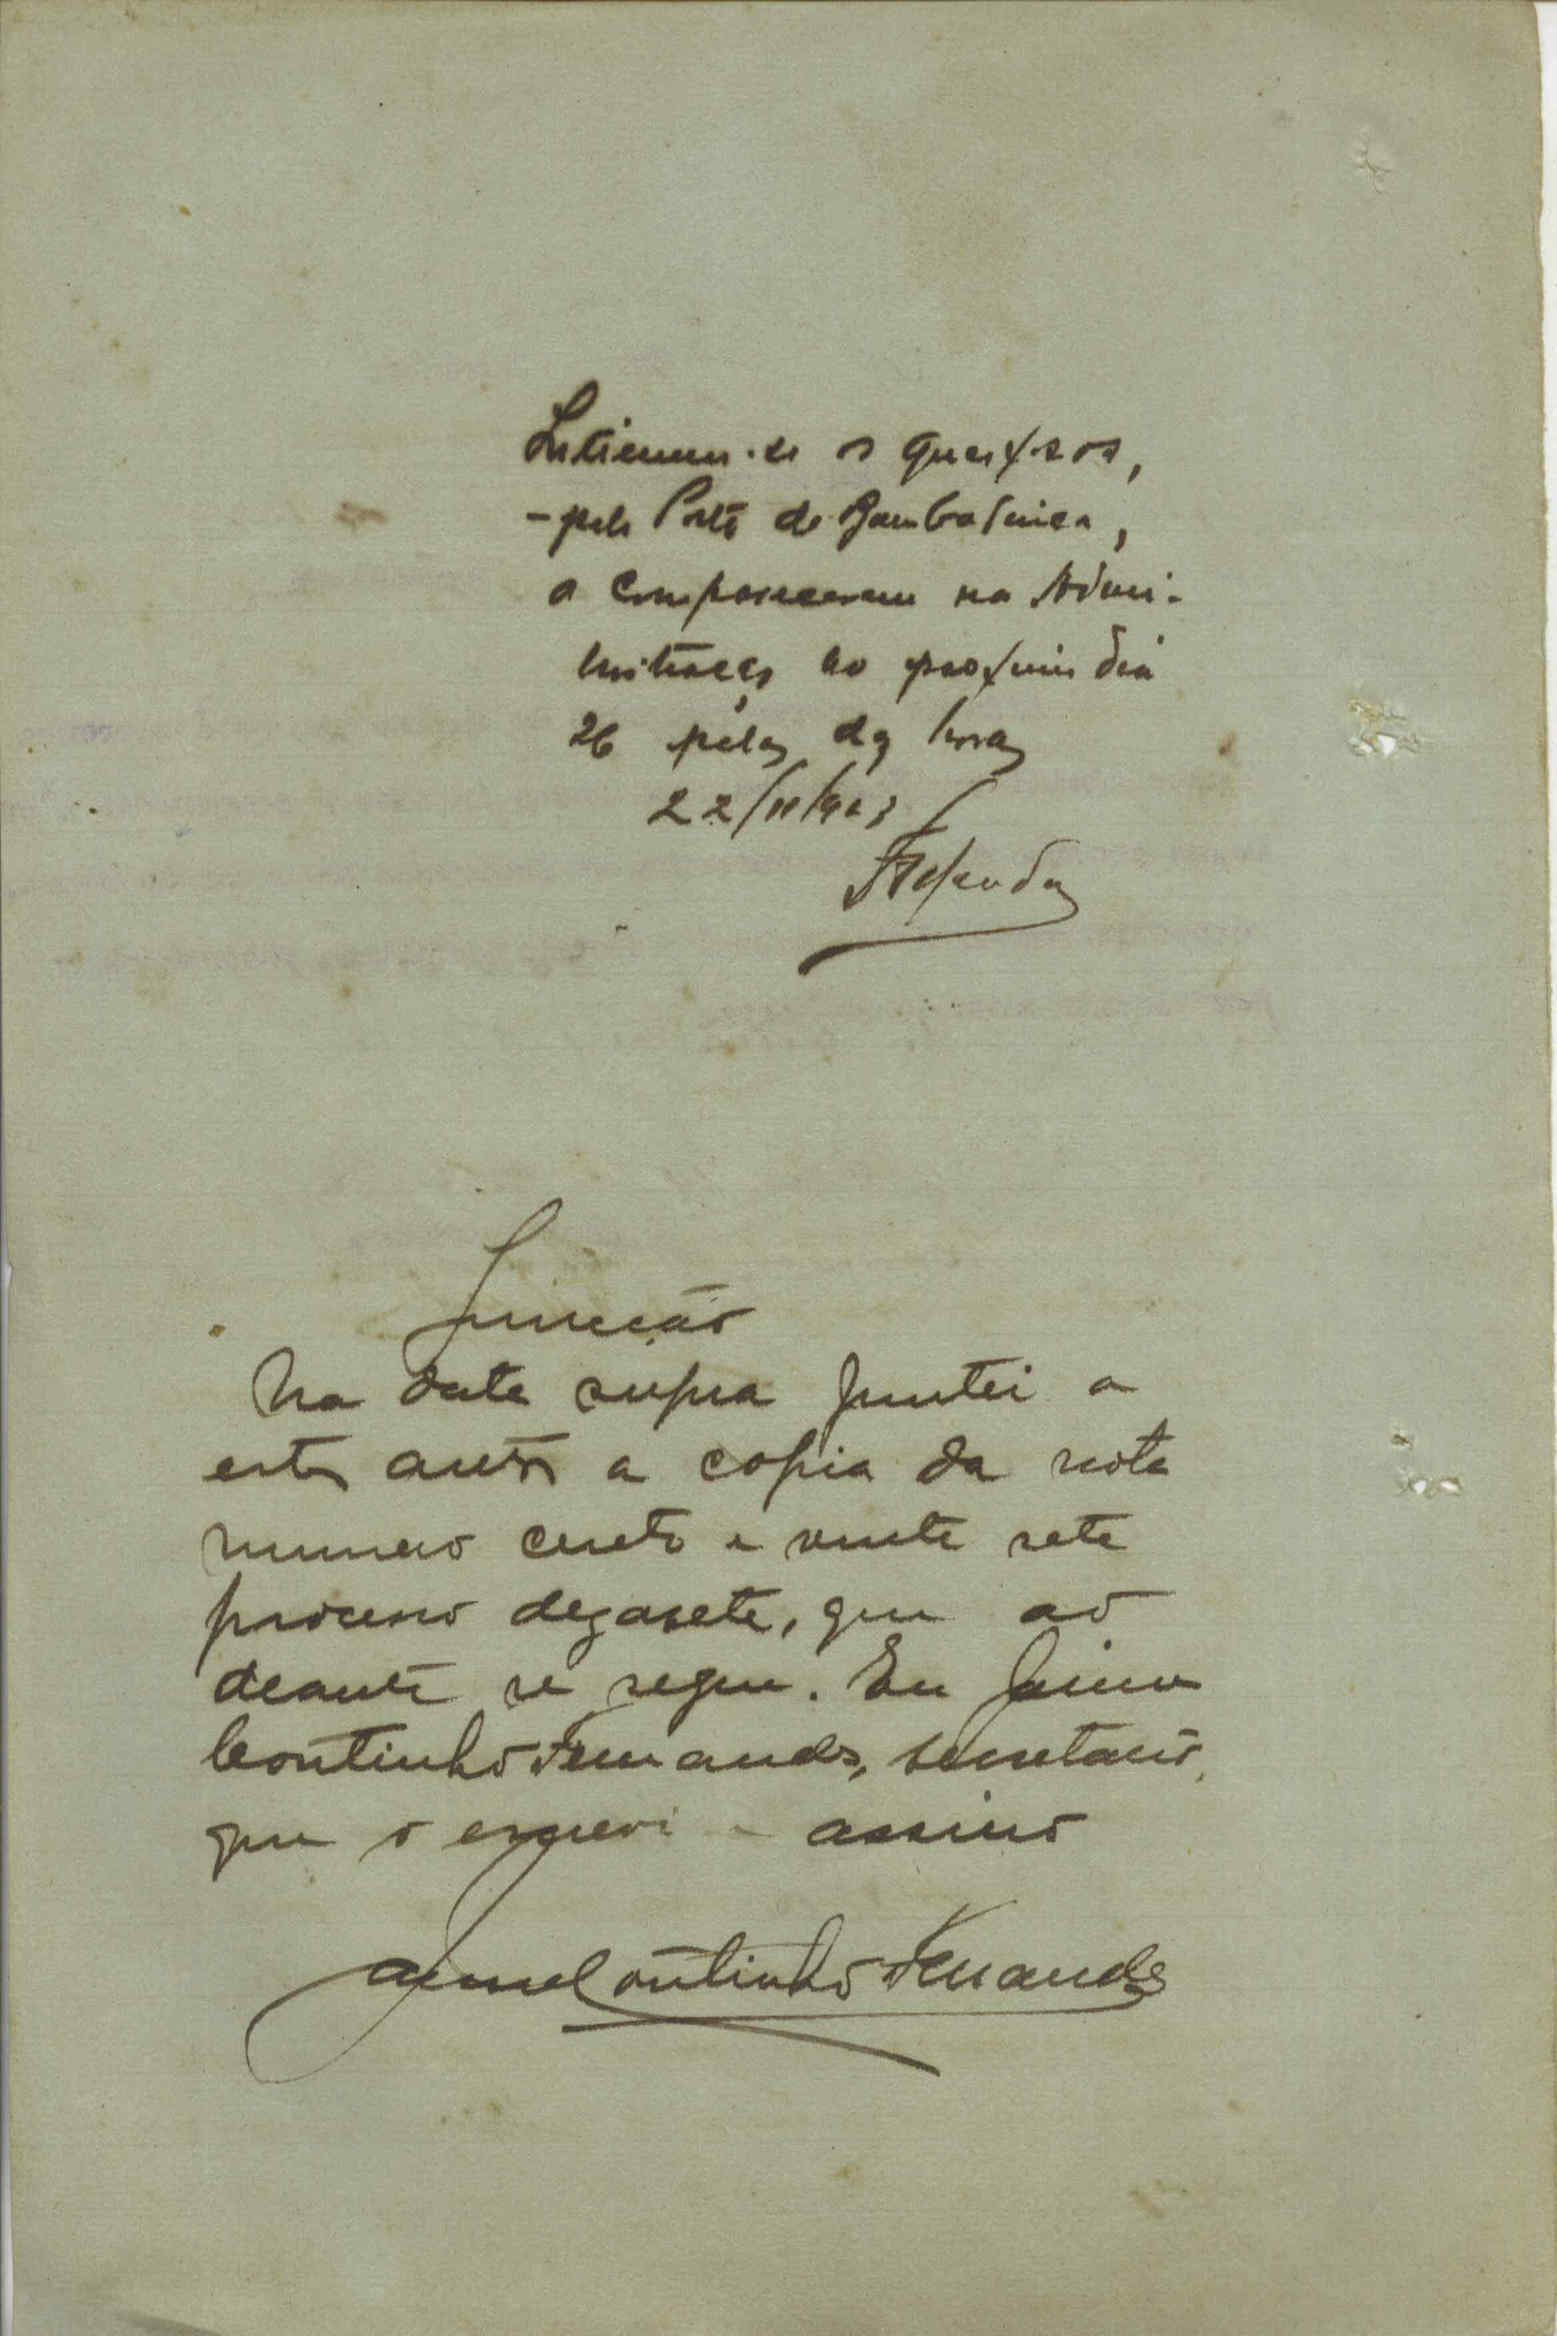 Intimem-se os queixosos,
- pelo Posto de Bambadinca,
a comparecerem na Admi-
nistração no proximo dia
26 pelas dez horas
22/11/923
Juncção
Na data supra juntei a
estes autos a copia da nota
numero cento e vinte sete
processo dezasete, que ao
deante se segue. Eu Jaime
Coutinho Fernandes, secretario,
que o escrevi e assino
Jaime Coutinho Fernandes